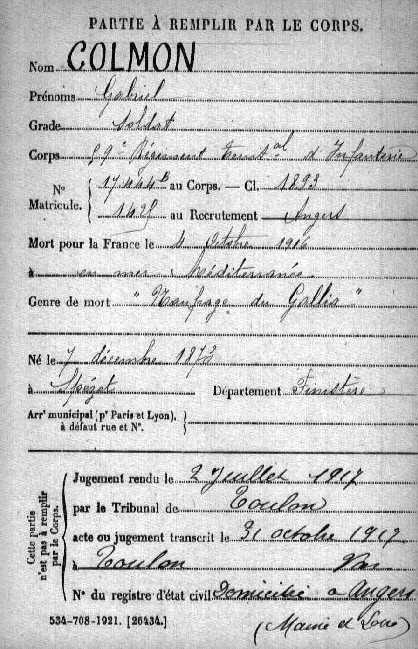 PARTIE À REMPLIR PAR LE CORPS.
Nom COLMON
Prénoms Gabriel
Grade Soldat
Corps 59e Régiment Territal d'Infanterie
N° Matricule. 17.444B au Corps. — Cl. 1893
1498 au Recrutement Angers
Mort pour la France le 4 Octobre 1916
à en mer Méditerranée
Genre de mort "Naufrage du Gallia"
Né le 7 décembre 1873
à Spézet Département Finistère
Arrt municipal (pr Paris et Lyon).
à défaut rue et N°.
Cette partie n'est pas à remplir par le Corps.
Jugement rendu le 2 Juillet 1917
par le Tribunal de Toulon
acte ou jugement transcrit le 31 octobre 1917
à Toulon Var
N° du registre d'état civil Domicilié à Angers
(Maine et Loire)
534-708-1921. [26434.]